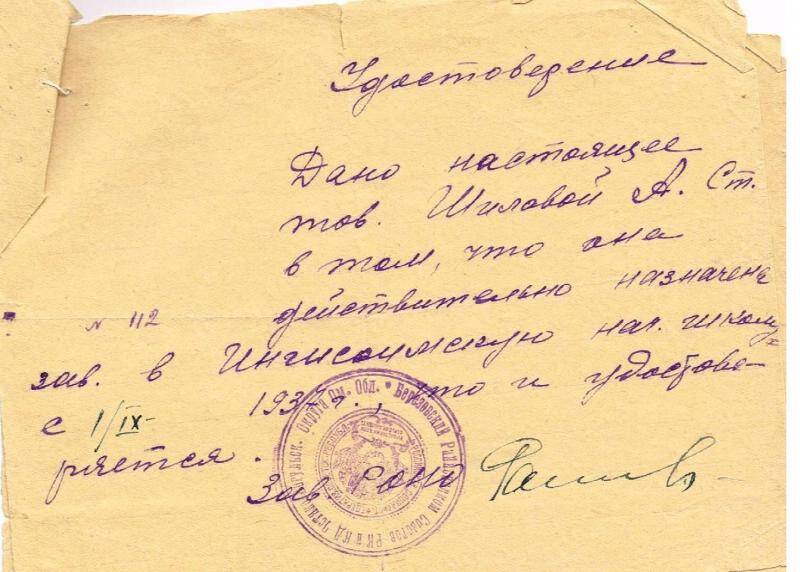 Удостоверение
Дано настоящее
тов. Шиловой А. Ст.
в том, что она
действительно назначена
№ 112
зав. в Ингисоимскую нач. школу
с 1/IX- 193 г., что и удостове-
ряется.
Зав РОНО
Березовский Рай Советов РК и КД Остяко Округа Ом. Обл.